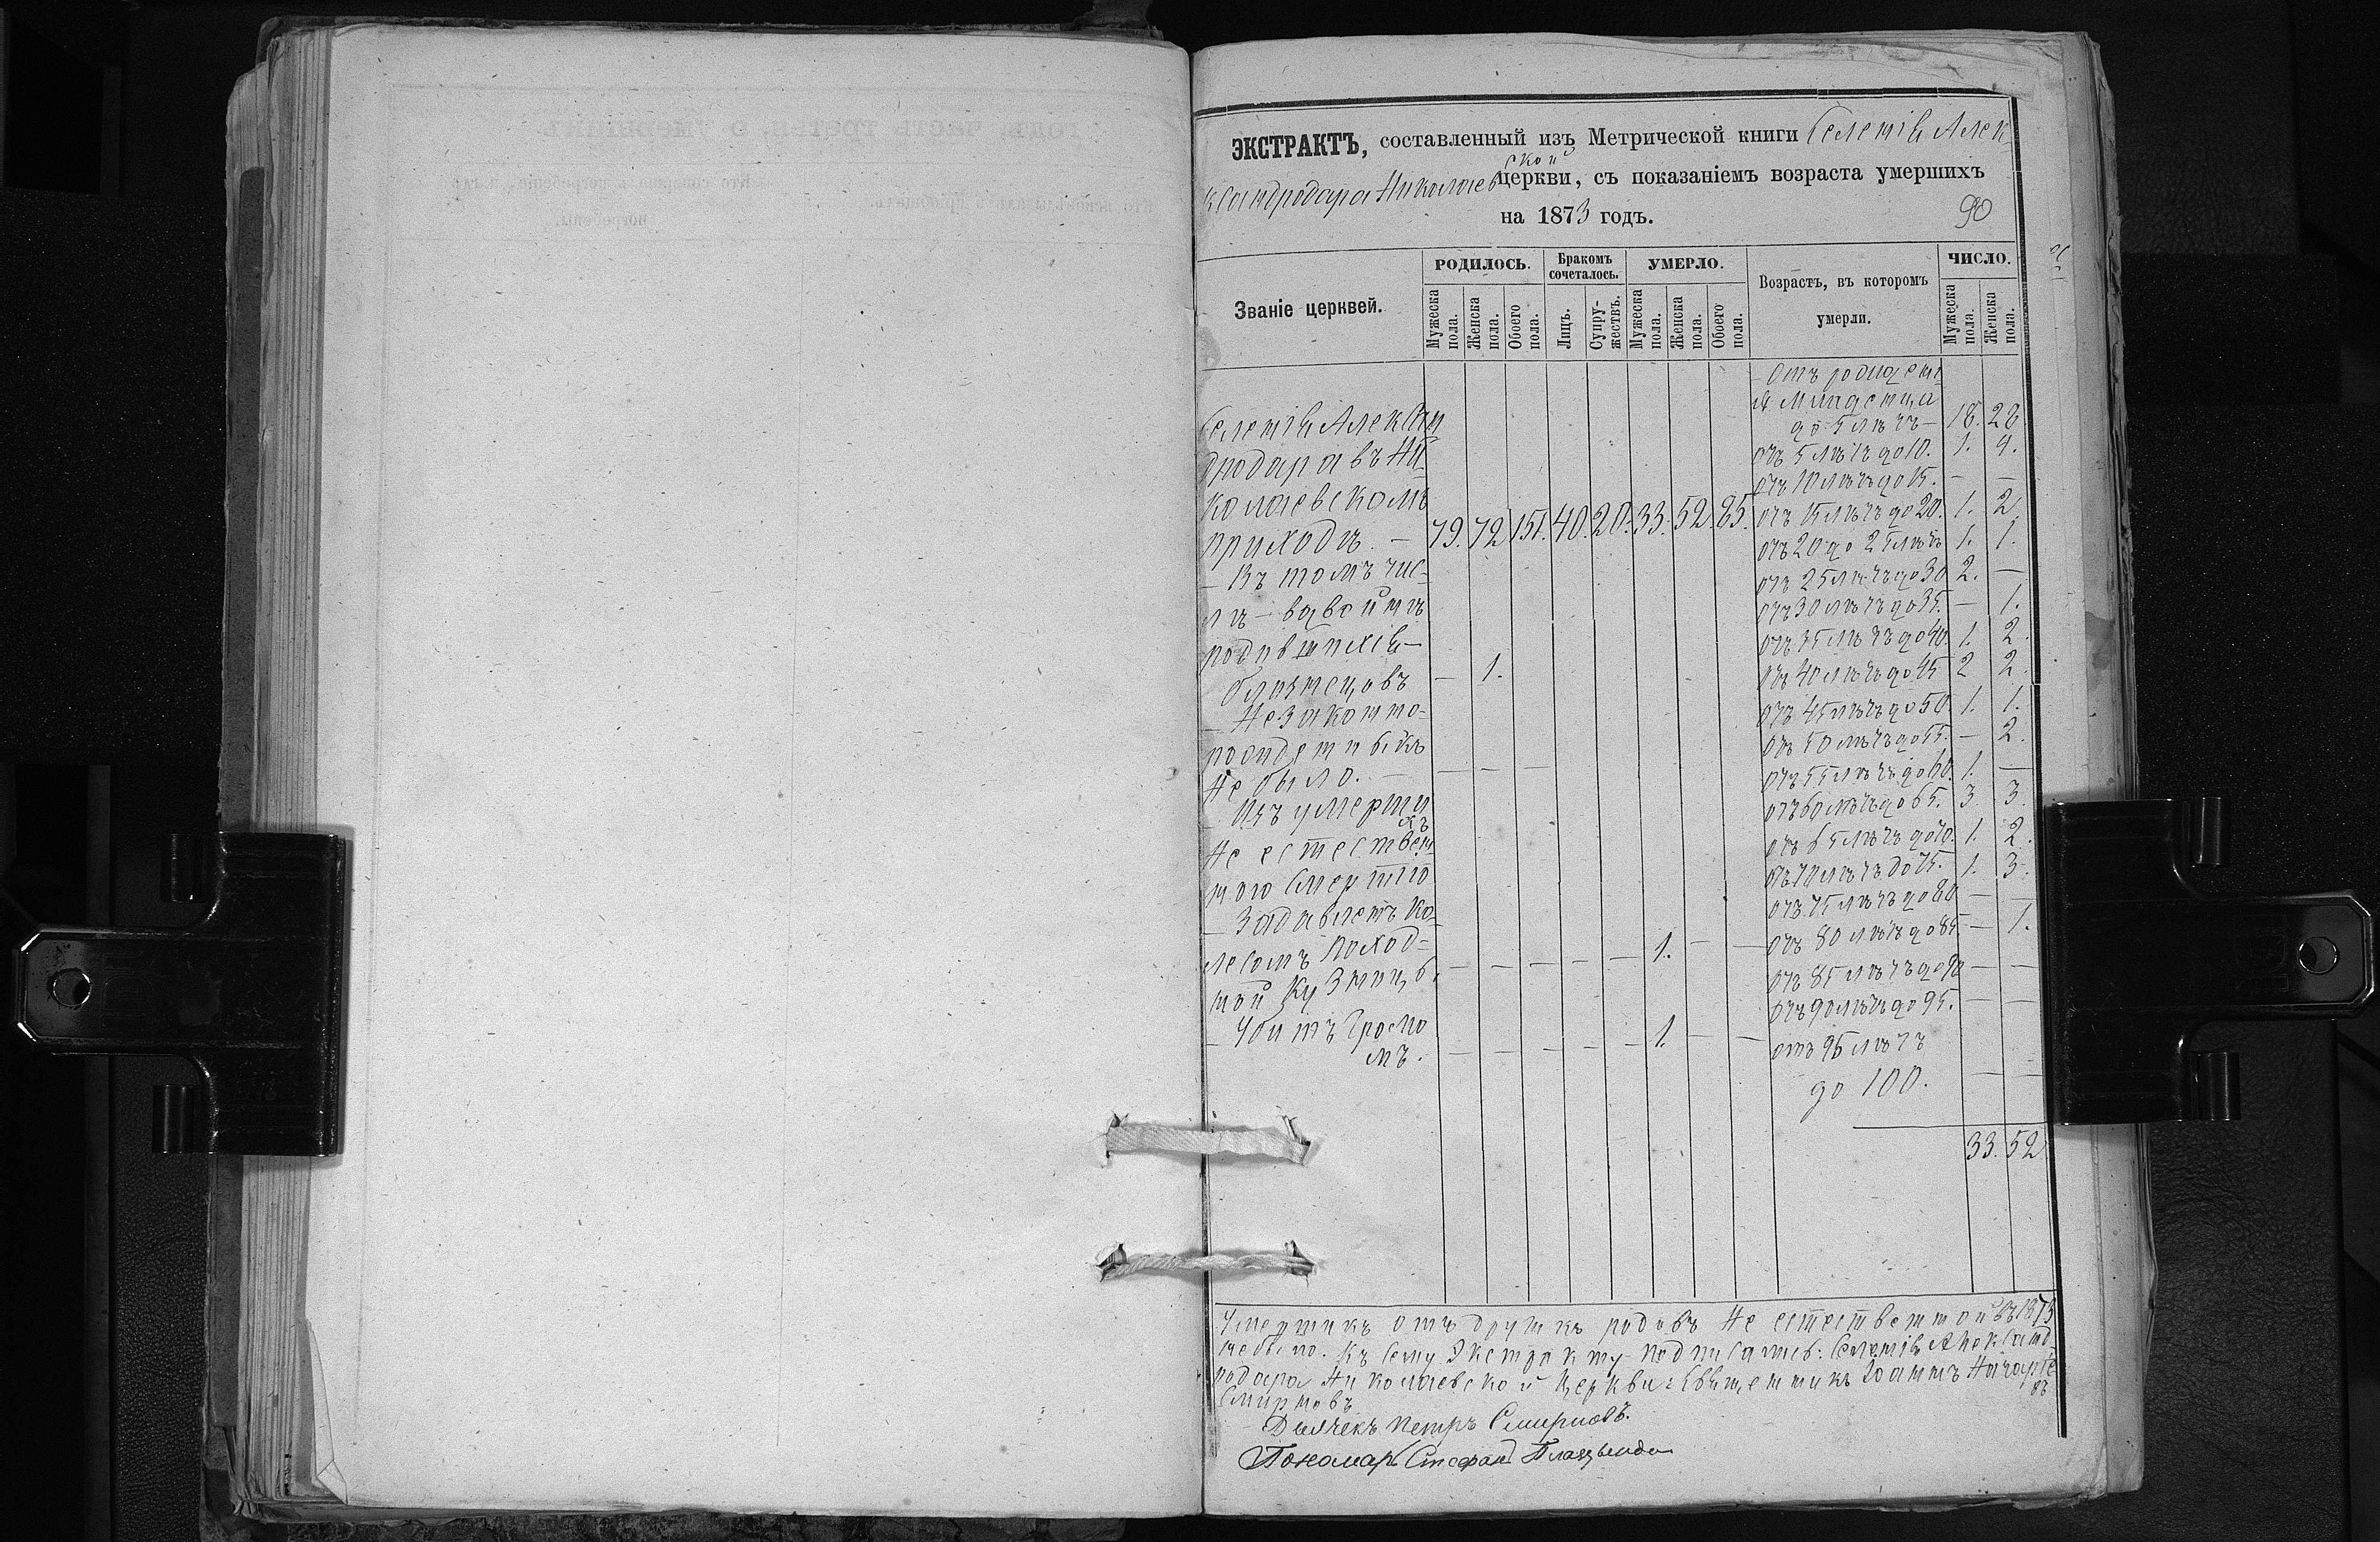 ЭКСТРАКТЪ, составленный изъ Метрической книги Селенія Алек-
ксандродара Николаевской церкви, съ показаніемъ возраста умершихъ
на 1873 годъ.
90
Званіе церквей.
РОДИЛОСЬ.
Бракомъ сочеталось.
УМЕРЛО.
Возрастъ, въ которомъ
умерли.
ЧИСЛО.
Мужеска пола.
Женска пола.
Обоего пола.
Лицъ.
Супружествъ.
Мужеска пола.
Женска пола.
Обоего пола.
Мужеска пола.
Женска пола.
Селенія Алексан
дродара въ Ни
колаевскомъ
приходѣ. — 79. 72 151. 40. 20. 33. 52. 85.
— Въ томъ чис-
лѣ — двойнѣ
родившихся —
близнецовъ — 1.
— Незаконно-
рожденныхъ
не было. — — — —
Изъ умерши
хъ
не естествен
ною смертію
— Задавленъ ко-
лесомъ поход-
ной кузницы. — — — — — 1. — —
— Убитъ громо
мъ. — — — — — 1. — —
— Отъ рожденi
я младенца
до 5 лѣтъ — 18. 28
отъ 5 лѣтъ до 10. 1. 4.
отъ 10 лѣтъ до 15. — —
отъ 15 лѣтъ до 20. 1. 2
отъ 20 до 25 лѣтъ 1. 1.
отъ 25 лѣтъ до 30 2. —
отъ 30 лѣтъ до 35. — 1.
отъ 35 лѣтъ до 40 1. 2.
отъ 40 лѣтъ до 45 2 2.
отъ 45 лѣтъ до 50. 1. 1.
отъ 50 лѣтъ до 55. — 2.
отъ 55 лѣтъ до 60. 1. —
отъ 60 лѣтъ до 65. 3. 3.
отъ 65 лѣтъ до 70. 1. 2.
отъ 70 лѣтъ до 75. 1. 3.
отъ 75 лѣтъ до 80 — —
отъ 80 лѣтъ до 85. — 1.
отъ 85 лѣтъ до 90 — —
отъ 90 лѣтъ до 95. — —
отъ 95 лѣтъ
до 100. — —
33. 52
Умершихъ отъ другихъ родовъ не естественной въ 1873
не было. Къ сему Экстракту подписались: Селенія Александ-
родара Николаевской Церкви: Священникъ Іоаннъ
Смирновъ
Дьячекъ Петръ Смирновъ.
Пономарь Стефанъ